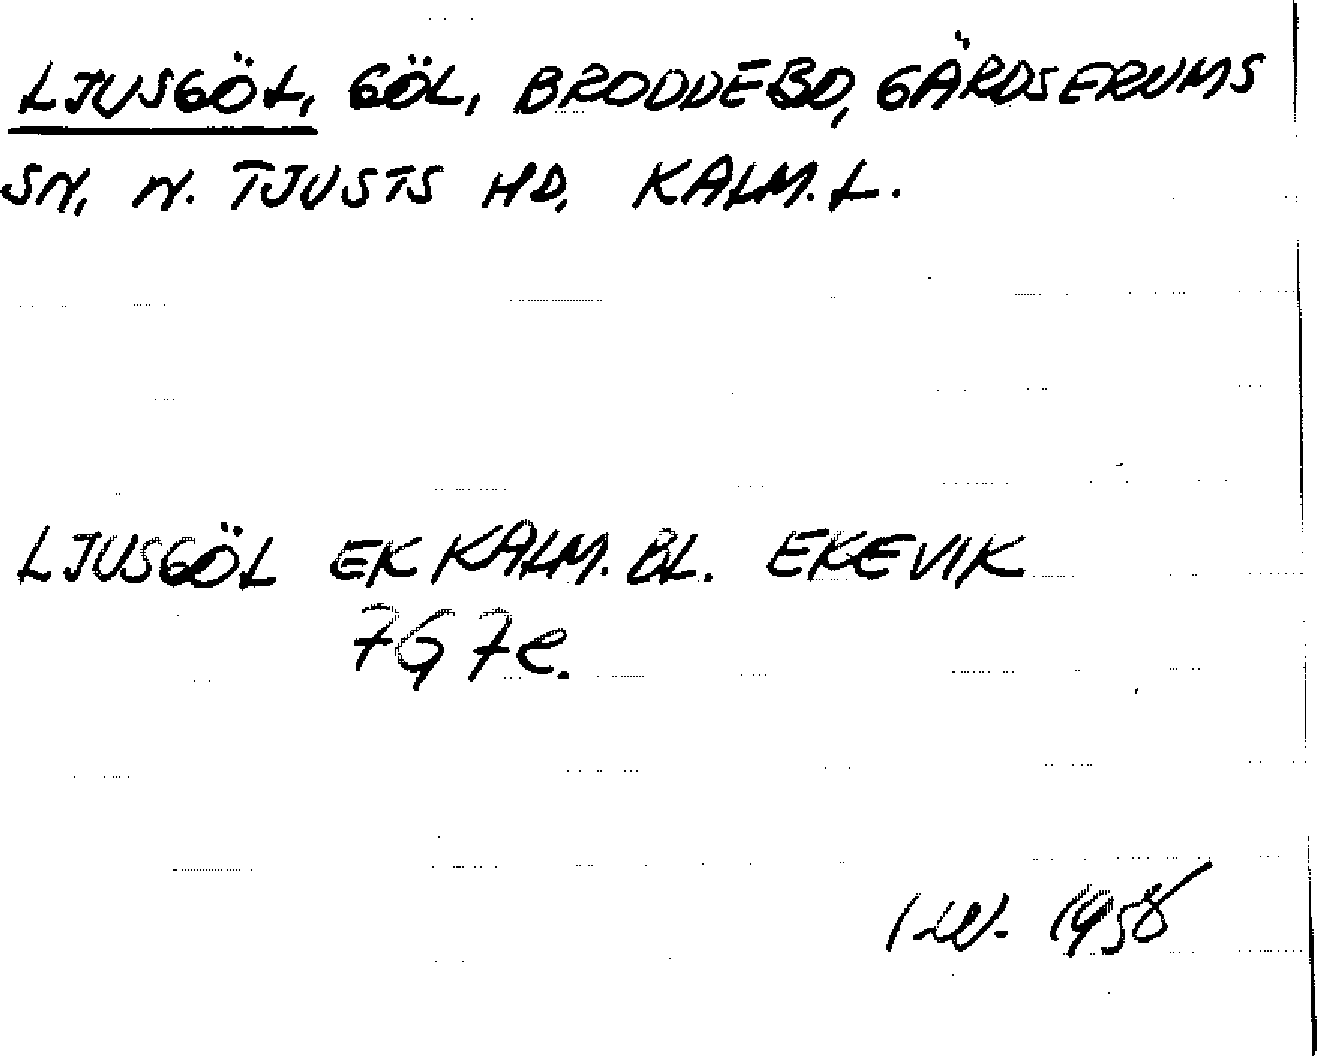 LJUSGÖL, GÖL, BRODDEBO, GÄRDSERUMS
SN, N. TJUSTS HD, KALM. L.
LJUSGÖL EK KALM. BL. EKEVIK
7G 7e.
1958